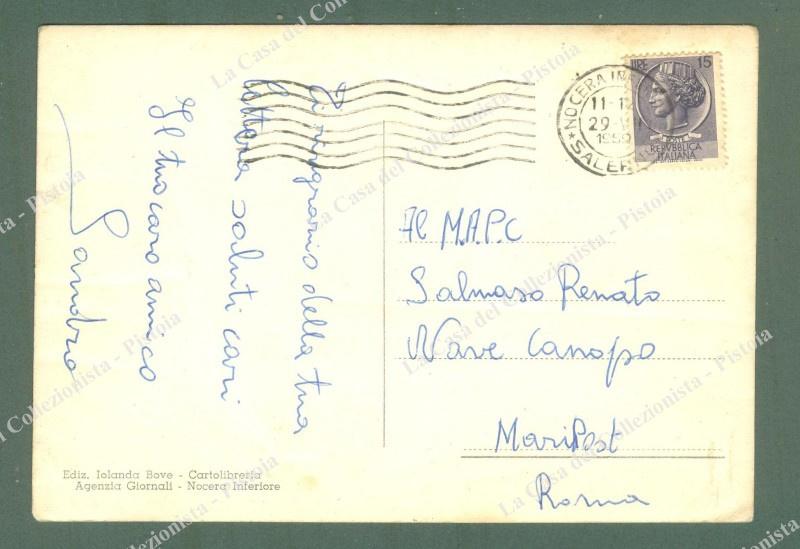 Ti ringrazio della tua
lettera saluti cari
Il tuo caro amico
Sandro
LIRE 15
REPVBBLICA
ITALIANA
*NOCERA INF
11-12
29
1959
*SALERNO
Al M.A.P.C
Salmaso Renato
Nave Canopo
MariPost
Roma
Ediz. Iolanda Bove - Cartolibreria
Agenzia Giornali - Nocera Inferiore
La Casa del Collezionista - Pistoia